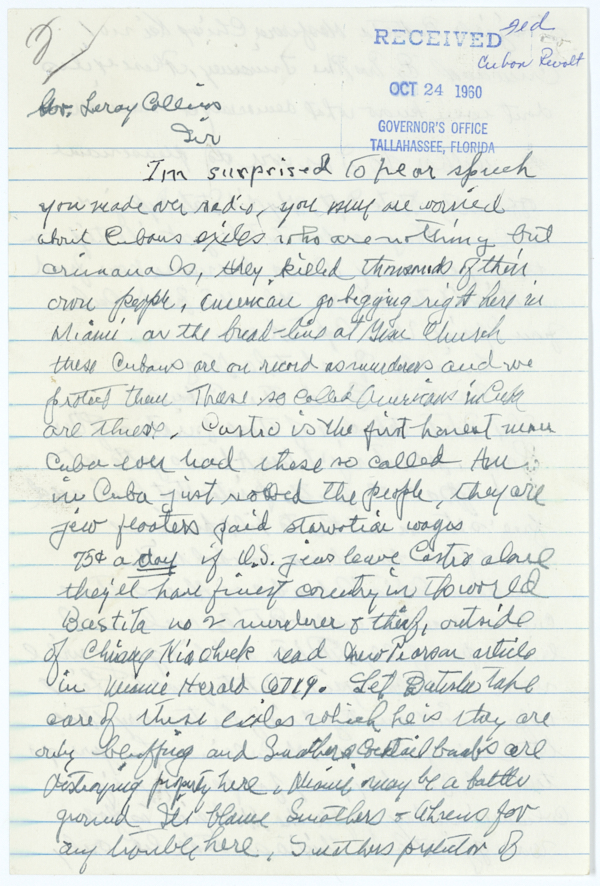 RECEIVED
Cuban Revolt
OCT 24 1960
GOVERNOR'S OFFICE
TALLAHASSEE, FLORIDA
Gov. Leroy Collins
Sir
I'm surprised To hear speech
you made over radio, you say are worried
about Cubans exiles who are nothing but
crimanals, they killed thousands of their
own people, American go begging right here in
Miami on the bread-line at Church
these Cubans are on record as murderers and we
protect them These so called Americans in Cuba
are thieves, Castro is the first honest man
Cuba ever had these so called Am
in Cuba just robbed the people, they are
jew paid starvation wages
75¢ a day if U.S. jews leave Castro alone
they'll have finest country in the world
Bastita no 2 murderer & thief, outside
of Chiang read Drew Pearson article
in Miami Herald OCT 19. Let Batista take
care of these exiles which he is they are
only and Smathers Cocktail bombs are
destroying property here, Miami may be a battle
ground Ill blame Smathers & Ahrens for
any trouble here, Smathers protector of